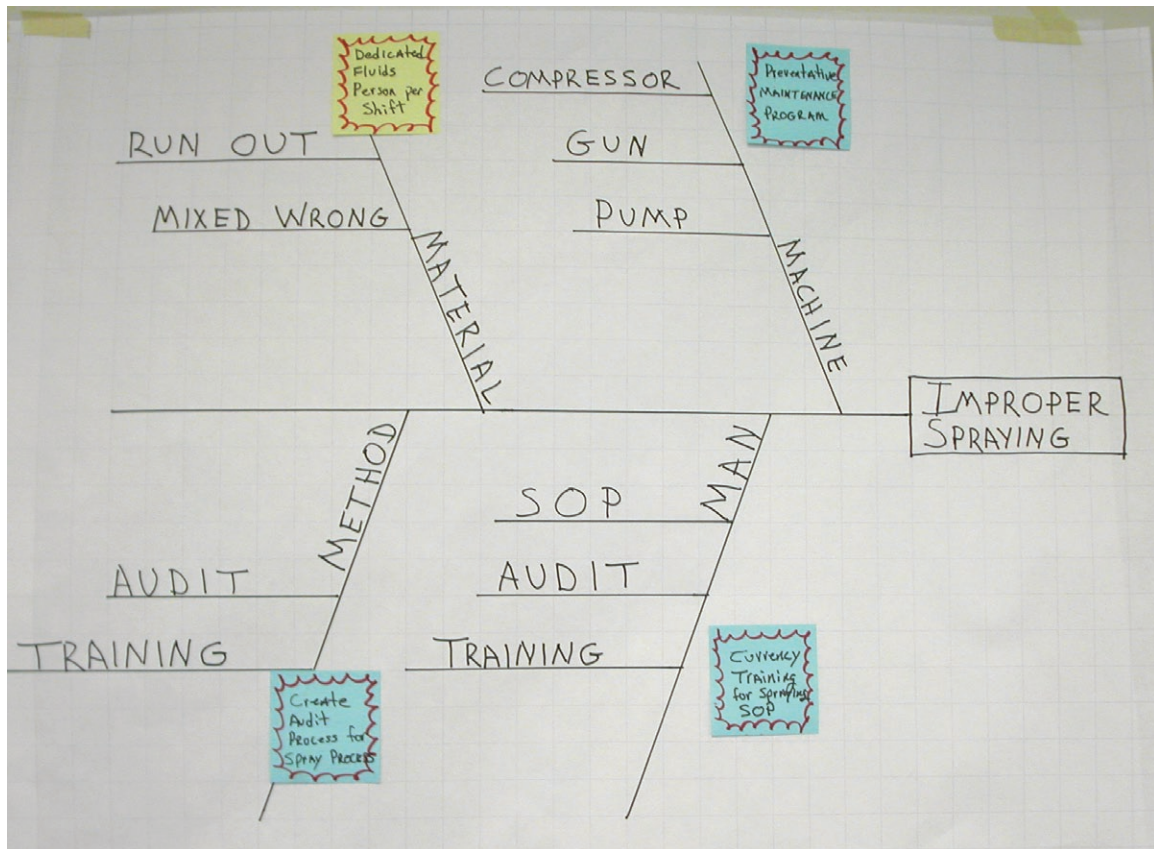 Dedicated
Fluids
Person per
Shift
RUN OUT
MIXED WRONG
MATERIAL
COMPRESSOR
GUN
PUMP
MACHINE
Preventative
MAINTENANCE
PROGRAM
IMPROPER
SPRAYING
METHOD
AUDIT
TRAINING
Create
Audit
Process for
Spray Process
MAN
SOP
AUDIT
TRAINING
Currency
Training
for Spraying
SOP